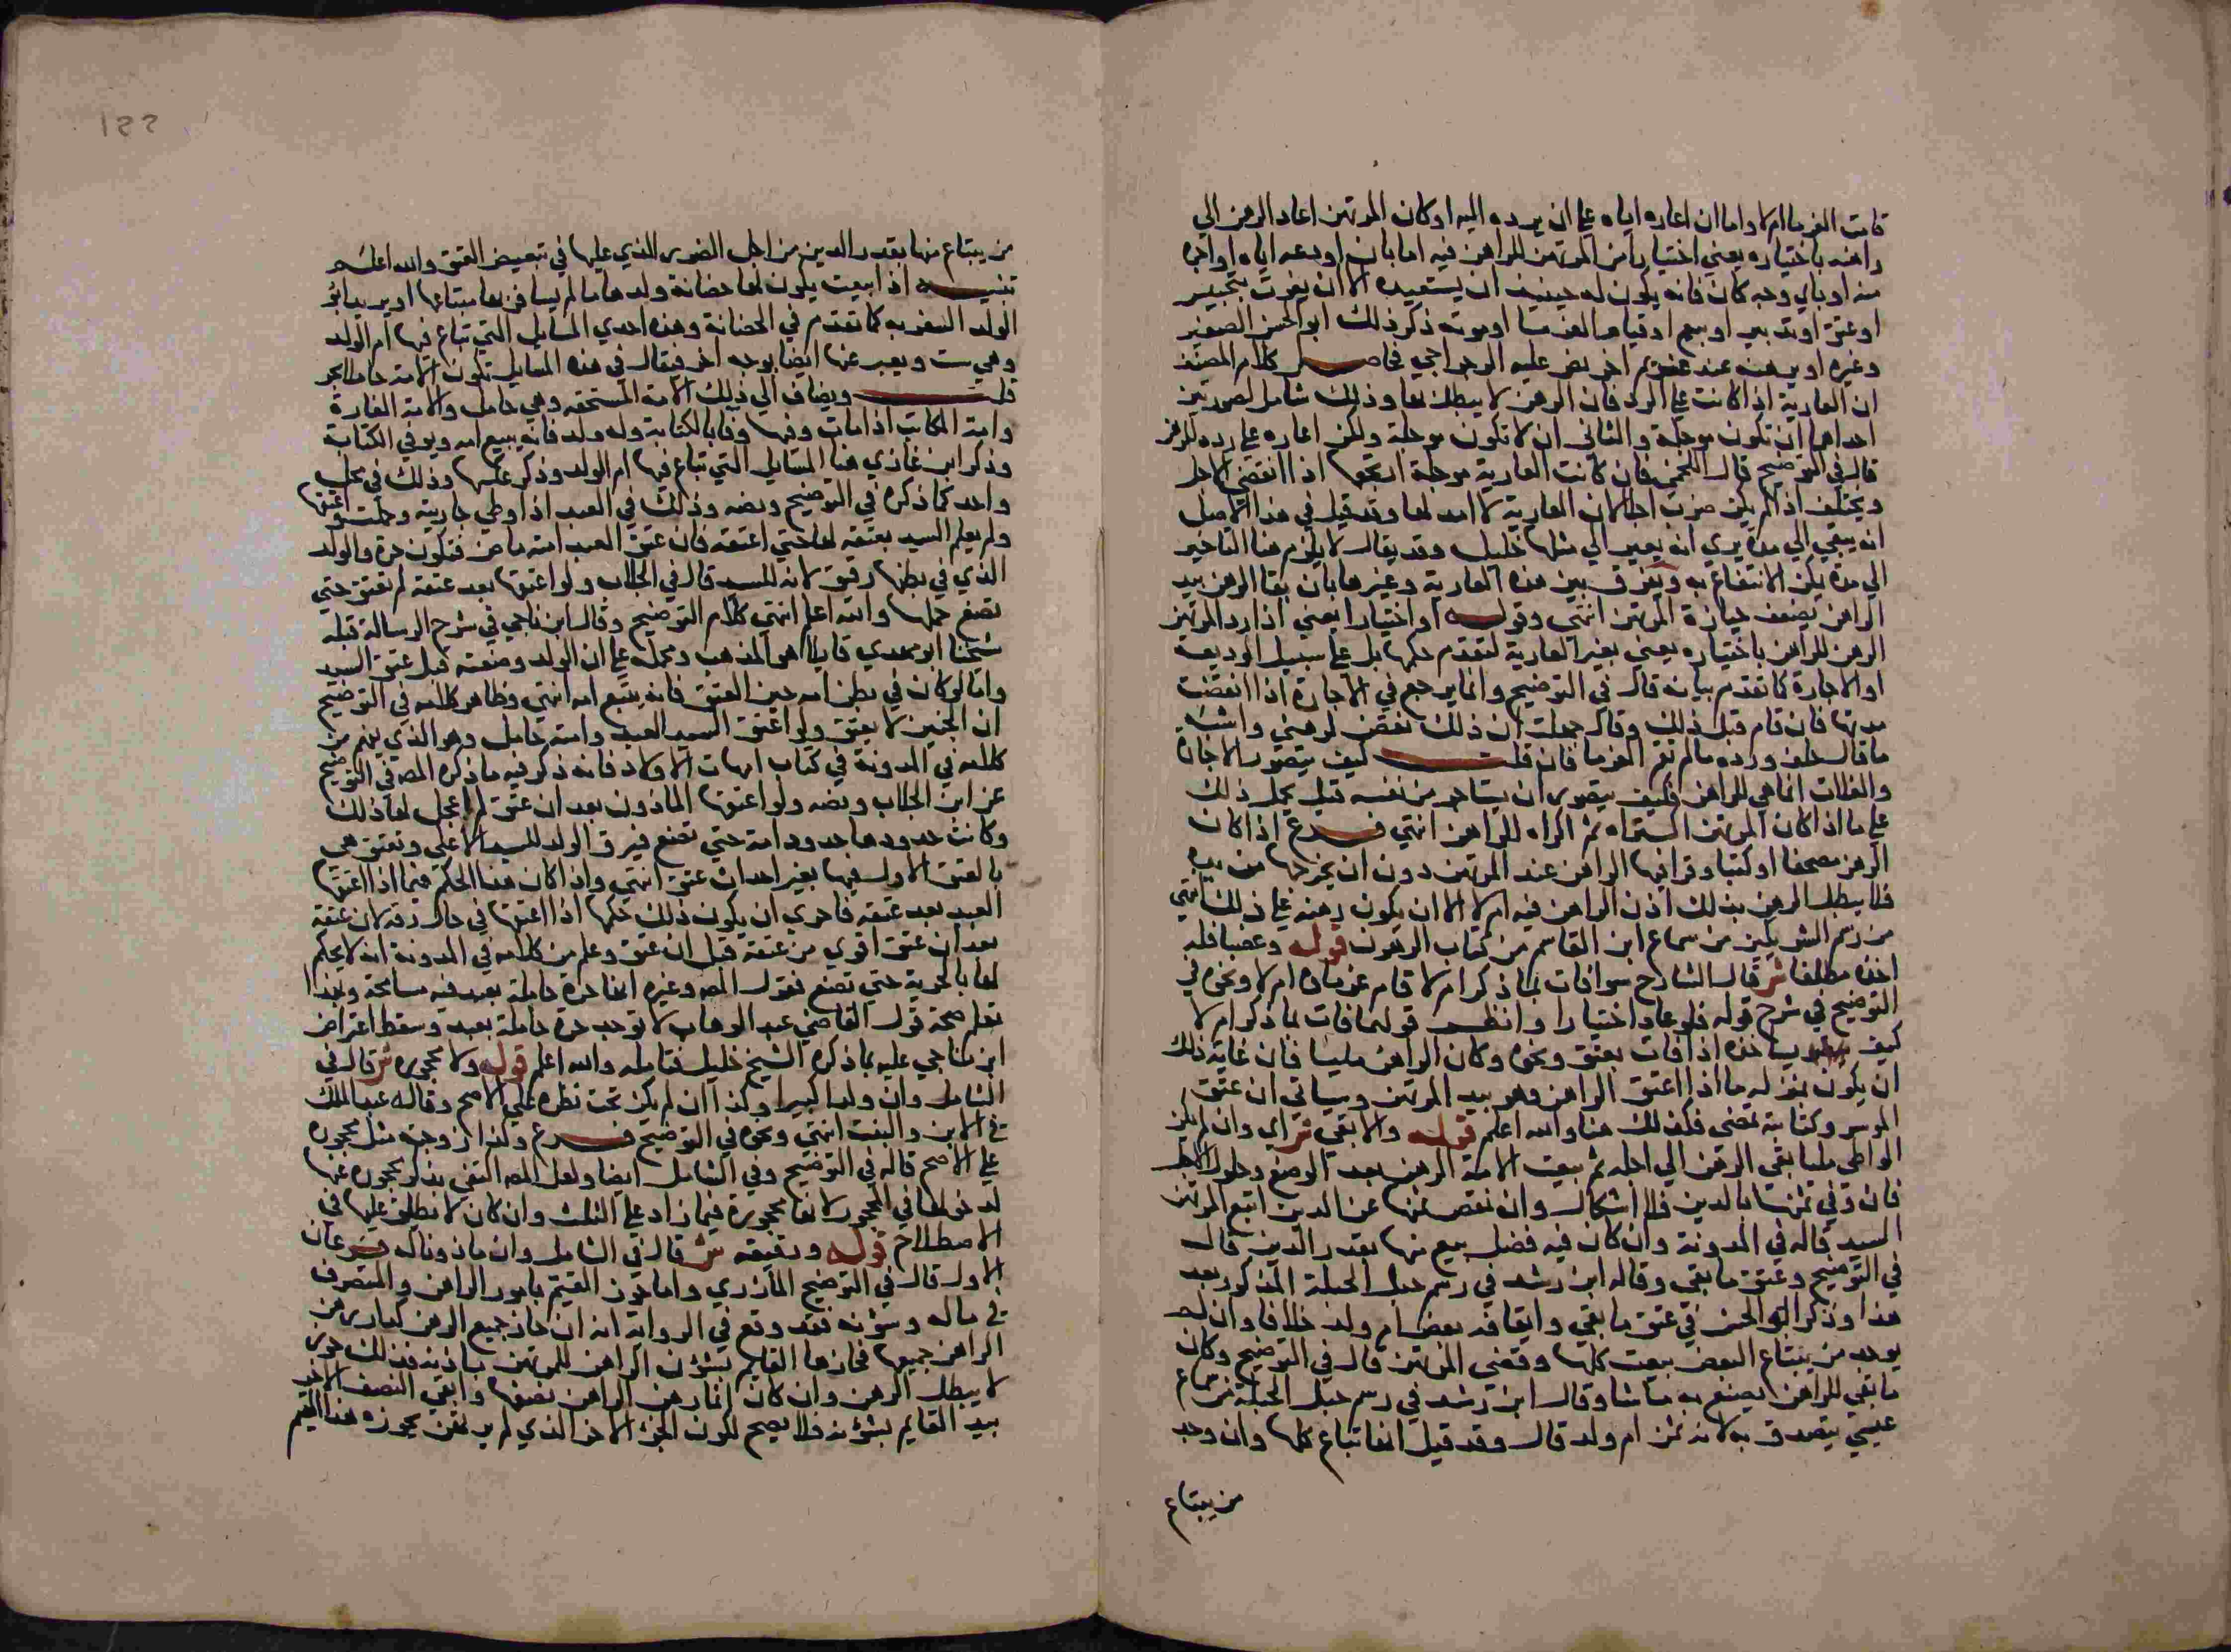 قامت الغرماء ام لا واما ان اعاره اياه على ان يرده اليه او كان المرتهن اعاد الرهن الي
راهنه باختياره يعني اختيارا من المرتهن للراهن فيه اما بان اودعه اياه او اجره
منه او باي وجه كان فانه يكون له حينيذ ان يستعيده الا ان يفوت بتحبيس
او عتق او تدبير او بيع او قيام الغرما او موته ذكر ذلك ابو الحسن الصغير
وغيره او يرهنه عند غريم اخر نص عليه الرجراجي فحاصل كلام المصنف
ان العارية اذا كانت على الرد فان الرهن لا يبطل بها وذلك شامل لصورتين
احداهما ان تكون موجلة والثاني ان لا تكون موجلة ولكن اعاره على رده للرهن
قال في التوضيح قال اللخمي فان كانت العارية موجلة ارتجعها اذا انقضى الاجل
ويختلف اذا لم يكن ضرب اجلا لان العارية لا امد لها وقد قيل في هذا الاصل
انه يبقي الي مدة يري انه يعير الي مثلها خليل وقد يقال لا يلزم هنا التاخير
الي مدة يمكن الانتفاع به ويفرق بين هذه العارية وغيرها بان بقا الرهن بيد
الراهن يضعف حيازة المرتهن انتهى وقوله او اختيارا يعني اذا رد المرتهن
الرهن للراهن باختياره يعني بغير العارية لتقدم حكمها بل على سبيل الوديعة
او الاجارة كما تقدم بيانه قال في التوضيح وانما يرجع في الاجارة اذا انقضت
مدتها فان قام قبل ذلك وقال جهلت ان ذلك نقض لرهني واشبه
ما قال حلف ورده ما لم تقم الغرما فان قلت كيف يتصور الاجارة
والغلات انما هي للراهن فكيف يتصور ان يستاجر من نفسه قيل يحمل ذلك
على ما اذا كان المرتهن اكتراه ثم اكراه للراهن انتهي فرع اذا كان
الرهن مصحفا او كتبا وقرا فيها الراهن عند المرتهن دون ان يخرجها من يده
فلا يبطل الرهن بذلك اذن الراهن فيه ام لا الا ان يكون رهنه على ذلك انتهى
من رسم الشريكين من سماع ابن القاسم من كتاب الرهون قوله وغصبا فله
اخذه مطلقا ش قال الشارح سوا فات بما ذكر ام لا قام غرماوه ام لا ونحوه في
التوضيح في شرح قوله فلو عاد اختيارا وانظر قولهما فات بما ذكر ام لا
كيف ياخذه اذا فات بعتق ونحوه وكان الراهن مليا فان غاية ذلك
ان يكون بمنزلة ما اذا اعتق الراهن وهو بيد المرتهن وسياتي ان عتق
الموسر وكتابته تمضي فكذلك هنا والله اعلم قوله والا بقي ش اي وان لم يكن
الواطي مليا بقي الرهن الي اجله ثم بيعت الامة الرهن بعد الوضع وحلول الاجل
فان وفي ثمنها بالدين فلا اشكال وان نقص ثمنها عن الدين اتبع المرتهن
السيد قاله في المدونة وان كان فيه فضل بيع منها بقدر الدين قال
في التوضيح وعتق ما بقي وقاله ابن رشد في رسم حبل الحبلة المذكور بعد
هذا وذكر ابو الحسن في عتق ما بقي وايقافه بعض ام ولد خلافا وان لم
يوجد من يبتاع البعض بيعت كلها وقضي المرتهن قال في التوضيح وكان
ما بقي للراهن يصنع به ما شا وقال ابن رشد في رسم حبل الحبلة من سماع
عيسي يتصدق به لانه ثمن ام ولد قال وقد قيل انها تباع كلها وان وجد
من يبتاع
من يبتاع منها بقدر الدين من اجل الضرر الذي عليها في تبعيض العتق والله اعلم
تنبيه اذا بيعت يكون لها حضانة ولدها ما لم يسافر بها مبتاعها او يريد ابو
الولد السفر به كما تقدم في الحضانة وهذه احدي المسايل التي تباع فيها ام الولد
وهي ست ويعبر عنها ايضا بوجه اخر فيقال في هذه المسايل تكون الامة حاملا بحر
قلت ويضاف الي ذلك الامة المستحقة وهي حامل والامة الغارة
وامة المكاتب اذا مات وفيها وفا بالكتابة وله ولد فانه يبيع امه ويوفي الكتابة
وذكر ابن غازي هنا المسايل التي تباع فيها ام الولد وذكر عكسها وذلك في محل
واحد كما ذكره في التوضيح ونصه وذلك في العبد اذا وطي جاريته وحملت واعتقها
ولم يعلم السيد بعتقه لها حتى اعتقه فان عتق العبد امته ماض فتكون حرة والولد
الذي في بطنها رقيق لانه للسيد قال في الجلاب ولو اعتقها بعد عتقه لم تعتق حتى
تضع حملها والله اعلم انتهى كلام التوضيح وقال ابن ناجي في شرح الرسالة قبله
شيخنا ابو مهدي قايلا هو المذهب ومحمله على ان الولد وضعته قبل عتق السيد
واما لو كان في بطن امه حين العتق فانه يتبع امه انتهي وظاهر كلامه في التوضيح
ان الجنين لا يعتق ولو اعتق السيد العبد وامته حامل وهو الذي يفهم من
كلامه في المدونة في كتاب امهات الاولاد فانه ذكر فيه ما ذكره المصه في التوضيح
عن ابن الجلاب ونصه ولو اعتقها الماذون بعد ان عتق لم اعجل لها ذلك
وكانت حدودها حدود امة حتى تضع فيرق الولد للسيد الاعلى وتعتق هي
بالعتق الاول فيها بغير احداث عتق انتهي واذا كان هذا الحكم فيما اذا اعتقها
العبد بعد عتقه فاحري ان يكون ذلك حكمها اذا اعتقها في حال رقه لان عتقه
بعد ان عتق اقوي من عتقه قبل ان عتق وعلم من كلامه في المدونة انه لا يحكم
لها بالحرية حتى تضع فقول المصه وغيره انها حرة حاملة بعبد فيه مسامحة وبهذا
تعلم صحة قول القاضي عبد الوهاب لا توجد حرة حاملة بعبد وسقط اعتراض
ابن ناجي عليه بما ذكره الشيخ خليل فتامله والله اعلم قوله ولا محجوره ش قال في
الشامل وان ولدا كبيرا وكذا ان لم يكن تحت نظره علي الاصح وقاله عبد الملك
في الابن والبنت انتهي ونحوه في التوضيح فرع وكذا زوجته مثل محجوره
على الاصح قاله في التوضيح وفي الشامل ايضا ولعل المصه اكتفي بذكر محجوره عنها
لدخولها في المحجور لانها محجورة فيما زاد على الثلث وان كان لا يطلق عليها في
الاصطلاح قوله ورقيقه ش قال في الشامل وان ماذونا له فرعان
الاول قال في التوضيح المازري واما حوز القيم بامور الراهن والمتصرف
في ماله وشؤنه فقد وقع في الرواية انه ان حاز جميع الرهن كدار رهن
الراهن جميعها فحازها القايم بشؤن الراهن للمرتهن باذنه فذلك حوز
لا يبطل الرهن وان كان انما رهن الراهن نصفها وابقى النصف الاخر
بيد القايم بشؤنه فلا يصح لكون الجزء الاخر الذي لم يرتهن يحوزه هذا القيم